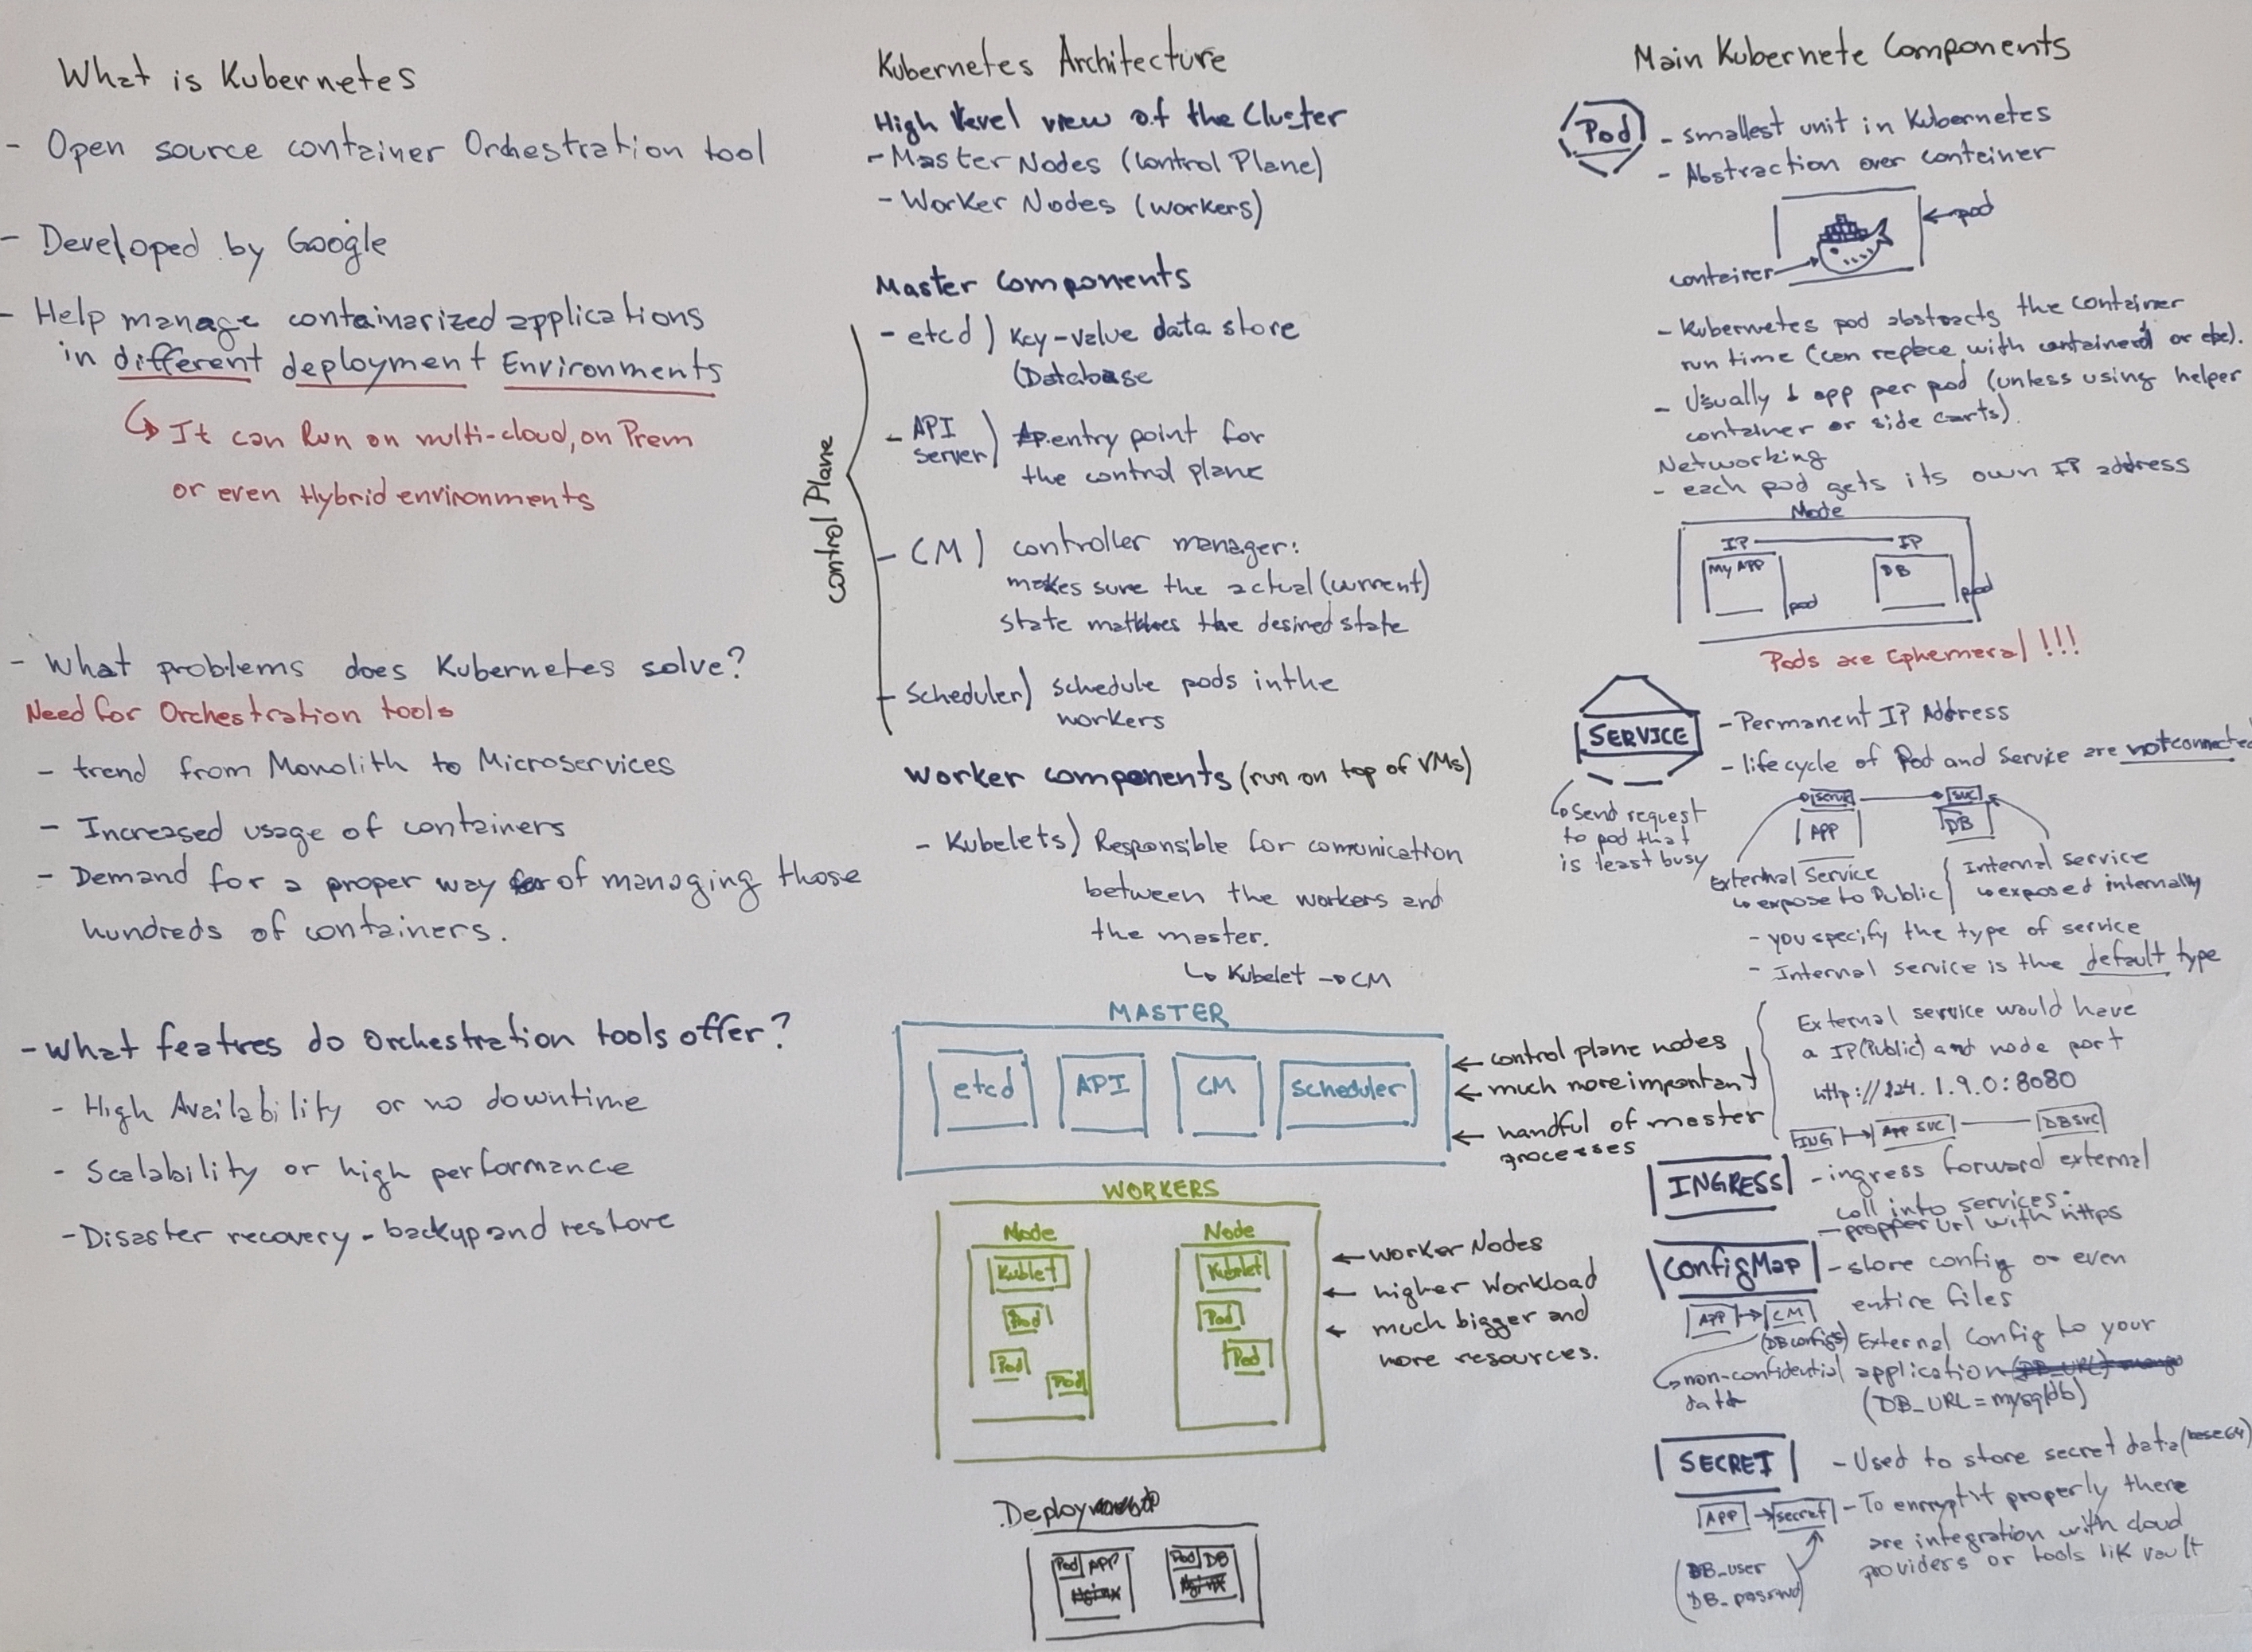 What is Kubernetes
- Open source container Orchestration tool
- Developed by Google
- Help manage containarized applications
in different deployment Environments
↳ It can Run on multi-cloud, on Prem
or even Hybrid environments
- What problems does Kubernetes solve?
Need for Orchestration tools
- trend from Monolith to Microservices
- Increased usage of containers
- Demand for a proper way of managing those
hundreds of containers.
- What featres do Orchestration tools offer?
- High Availability or no downtime
- Scalability or high performance
- Disaster recovery - backup and restore
Kubernetes Architecture
High level view of the Cluster
- Master Nodes (Control Plane)
- Worker Nodes (workers)
Master Components
control Plane
- etcd) Key-value data store
(Database
- API server) entry point for
the control plane
- CM) controller manager:
makes sure the actual (current)
state matches the desired state
- Scheduler) schedule pods in the
workers
Worker components (run on top of VMs)
- Kubelets) Responsible for comunication
between the workers and
the master.
↳ Kubelet → CM
MASTER
etcd API CM Scheduler
← control plane nodes
← much more important
← handful of master
processes
WORKERS
Node
Kublet
Pod
Pod
Pod
Node
Kubelet
Pod
Pod
← Worker Nodes
← higher Workload
← much bigger and
more resources.
Deploy
Pod APP
Nginx
Pod DB
Nginx
Main Kubernete Components
Pod
- smallest unit in Kubernetes
- Abstraction over conteiner
← pod
container
- Kubernetes pod abstracts the container
run time (can replace with containerd or etc).
- Usually 1 app per pod (unless using helper
container or side carts).
Networking
- each pod gets its own IP address
Node
IP IP
My APP DB
pod pod
Pods are Ephemeral !!!
SERVICE
- Permanent IP Address
- life cycle of Pod and Service are not connected
↳ Send request
to pod that
is least busy
svc
APP DB
External Service
↳ expose to Public
Internal service
↳ exposed internally
- you specify the type of service
- Internal service is the default type
External service would have
a IP(Public) and node port
http://124.1.9.0:8080
ING → APP SVC DB SVC
INGRESS
- ingress forward external
call into services.
- propper url with https
ConfigMap
- store config or even
entire files
APP → CM
(DB configs)
↳ non-confidential
data
External Config to your
application (DB_URL)
(DB_URL = mysqldb)
SECRET
- Used to store secret data (base64)
APP → secret
- To encrypt it properly there
are integration with cloud
providers or tools lik vault
DB_user
DB_passrwd